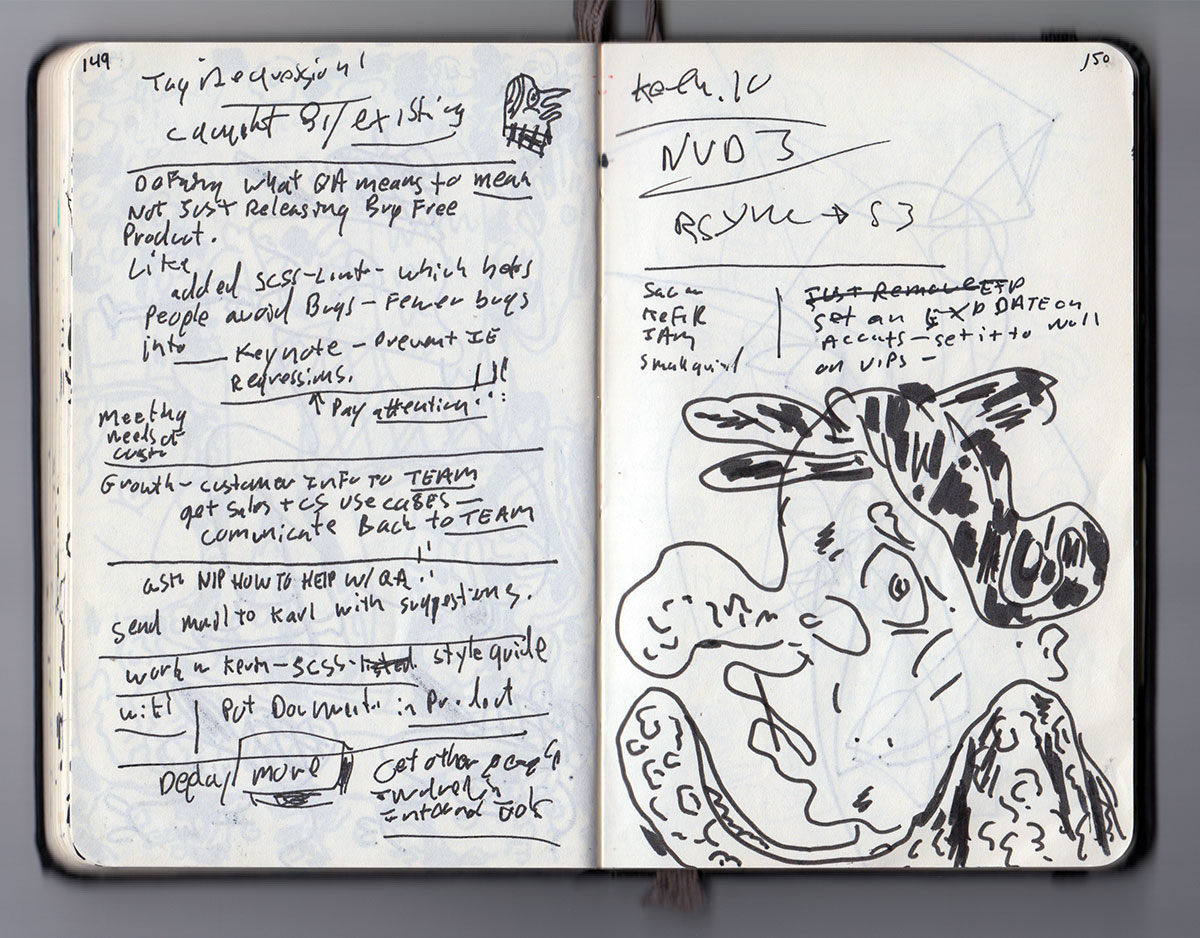 149
Tag Regression
caught By/existing
Defining what QA means to mean
Not Just Releasing Bug Free
Product.
Like
added SCSS-Lint - which helps
People avoid Bugs - Fewer bugs
into Keynote - Prevent IE
Regressions.
↑ Pay attention
Meeting
needs of
cust
Growth - customer Info To TEAM
get Sales + CS use cases -
comunicate Back to TEAM
ask NIP HOW TO HELP W/ QA
Send mail to Karl with suggestions.
work w Kevin - SCSS- style guide
Put Documents in Product
more
Get other people
involved in
Internal Tools
150
NVD 3
RSYNC → S3
KeFIR
Just Remove EXP
Set an EXP DATE on
Accnts - set it to Null
on VIPs -